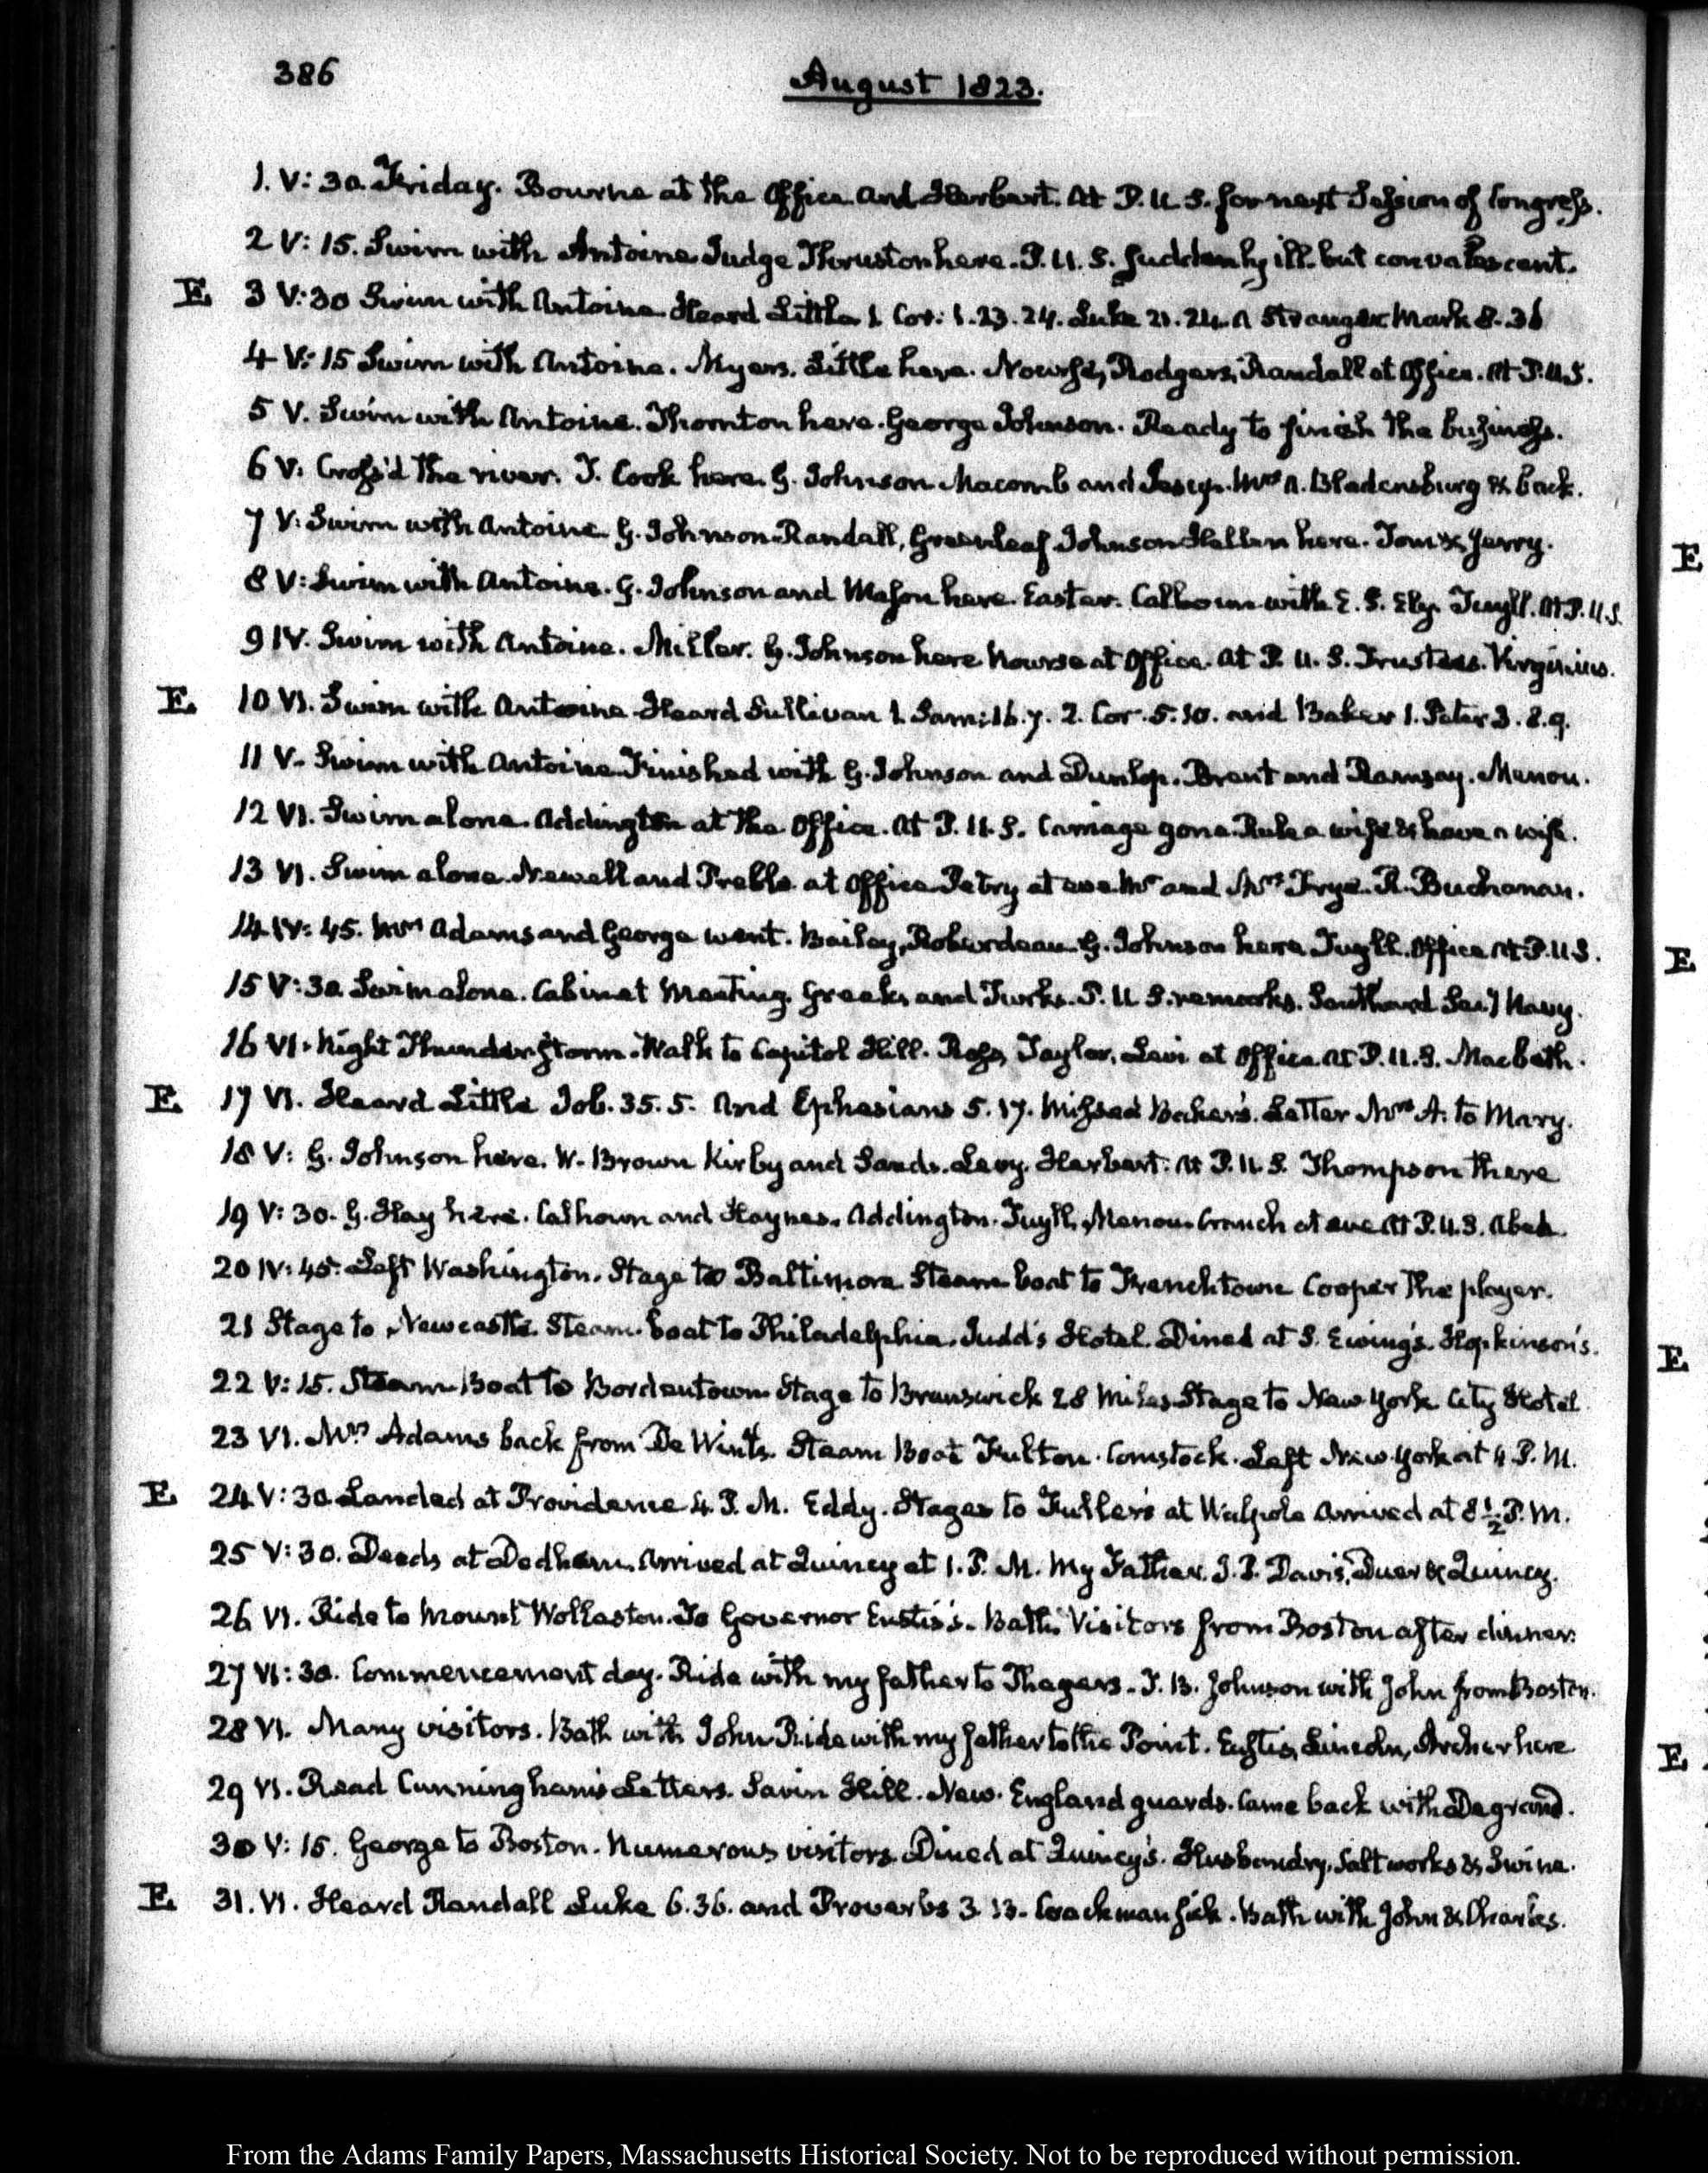 386
August 1823.
1. V: 30. Friday. Bourne at the Office and Herbert. At P. U. S. for next Session of Congress.
2 V: 15. Swim with Antoine Judge Thruston here. P. U. S. suddenly ill but convalescent.
E 3 V: 30 Swim with Antoine Heard Little 1 Cor: 1. 23. 24. Luke 21. 24. A Stranger Mark 8. 36
4 V: 15 Swim with Antoine. Myers. Little here. Nourse, Rodgers, Randall at Office. At P. U. S.
5 V. Swim with Antoine. Thornton here. George Johnson. Ready to finish the business.
6 V: Cross'd the river. J. Cook here. G. Johnson Macomb and Jesup. Mrs A. Bladensburg & back.
7 V: Swim with Antoine G. Johnson Randall, Greenleaf Johnson Hellen here. Tom & Jerry.
8 V: Swim with Antoine. G. Johnson and Mason here. Easter. Calhoun with E. S. Ely. Tuyll. At P. U. S.
9 IV. Swim with Antoine. Miller. G. Johnson here Nourse at Office. At P. U. S. Trustees. Virginius.
E 10 VI. Swim with Antoine Heard Sullivan 1. Sam: 16. 7. 2. Cor. 5. 10. and Baker 1. Peter 3. 8. 9.
11 V. Swim with Antoine Finished with G. Johnson and Dunlop. Brent and Ramsay. Menou.
12 VI. Swim alone. Addington at the Office. At P. U. S. Carriage gone. Rule a wife & have a wife.
13 VI. Swim alone. Newell and Preble at Office Petry at eve Mr and Mrs Frye. R. Buchanan.
14 IV: 45. Mrs Adams and George went. Bailey, Roberdeau. G. Johnson here Tuyll. Office At P. U S.
15 V: 30. Swim alone. Cabinet Meeting. Greeks and Turks. P. U S. remarks. Southard Secy Navy.
16 VI. Night Thunder Storm. Walk to Capitol Hill. Ross, Taylor, Levi at Office. At P. U. S. Macbeth.
E 17 VI. Heard Little Job. 35. 5. And Ephesians 5. 17. Missed Baker's. Letter Mrs A. to Mary.
18 V: G. Johnson here. W. Brown Kirby and Sands. Levy. Herbert. At P. U. S. Thompson there
19 V: 30. G. Hay here. Calhoun and Haynes. Addington. Tuyll, Menou. Cranch at eve At P. U. S. Abed.
20 IV: 45. Left Washington. Stage to Baltimore Steam boat to Frenchtown Cooper the player.
21 Stage to Newcastle. Steam boat to Philadelphia. Judd's Hotel. Dined at S. Ewing's. Hopkinson's.
22 V: 15. Steam Boat to Bordentown Stage to Brunswick 28 Miles Stage to New York City Hotel
23 VI. Mrs Adams back from De Wint's. Steam Boat Fulton. Comstock. Left New York at 4 P. M.
E 24 V: 30. Landed at Providence 4 P. M. Eddy. Stages to Fuller's at Walpole Arrived at 8 1/2 P. M.
25 V: 30. Deeds at Dedham. Arrived at Quincy at 1. P. M. My Father. J. P. Davis, Duer & Quincy.
26 VI. Ride to Mount Wollaston. To Governor Eustis's. Bath. Visitors from Boston after dinner.
27 VI: 30. Commencement day. Ride with my father to Thayers. T. B. Johnson with John from Boston.
28 VI. Many visitors. Bath with John Ride with my father to the Point. Eustis, Lincoln, Archer here
29 VI. Read Cunningham's Letters. Savin Hill. New England guards. Came back with Degrand.
30 V: 15. George to Boston. Numerous visitors. Dined at Quincy's. Husbandry, Salt works & Swine.
E 31. VI. Heard Randall Luke 6. 36. and Proverbs 3 13. Coachman sick. Bath with John & Charles.
E
E
E
E
From the Adams Family Papers, Massachusetts Historical Society. Not to be reproduced without permission.